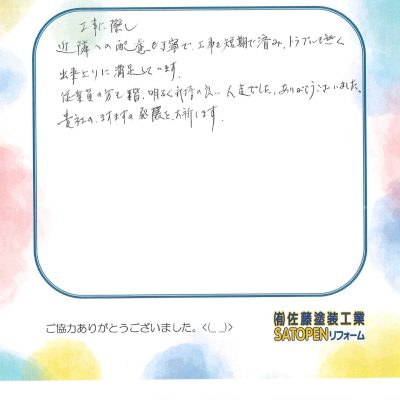 工事に際し
近隣への配慮も丁寧で、工事も短期で済み、トラブルも無く
出来上りに満足しています。
従業員の方も皆、明るく気持の良い人達でした。ありがとうございました。
貴社の、ますますの発展をお祈りします。
ご協力ありがとうございました。<(_ _)>
(有)佐藤塗装工業
SATOPENリフォーム